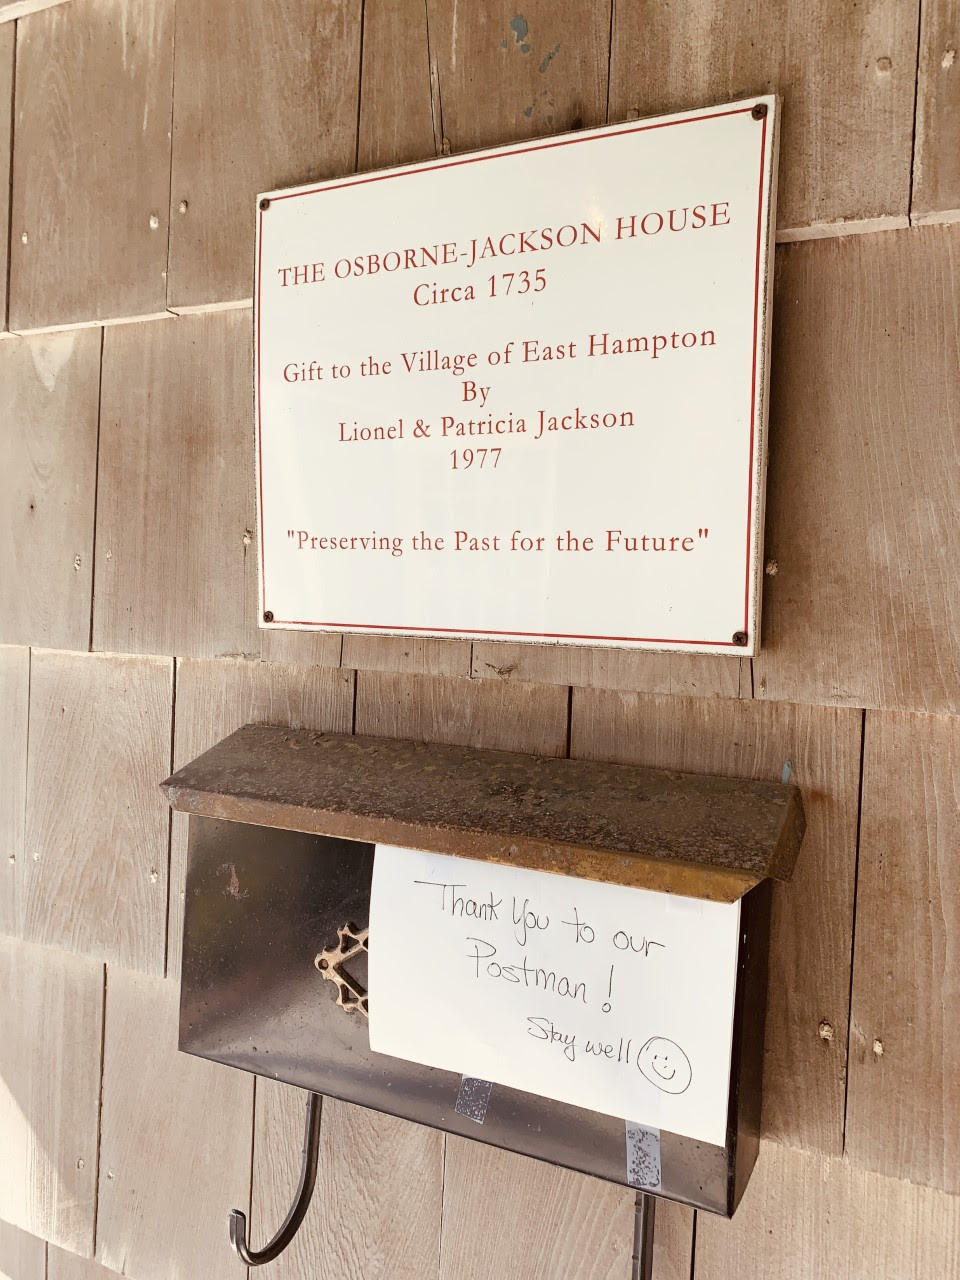 THE OSBORNE-JACKSON HOUSE
Circa 1735
Gift to the Village of East Hampton
By
Lionel & Patricia Jackson
1977
"Preserving the Past for the Future"
Thank You to our
Postman!
Stay well